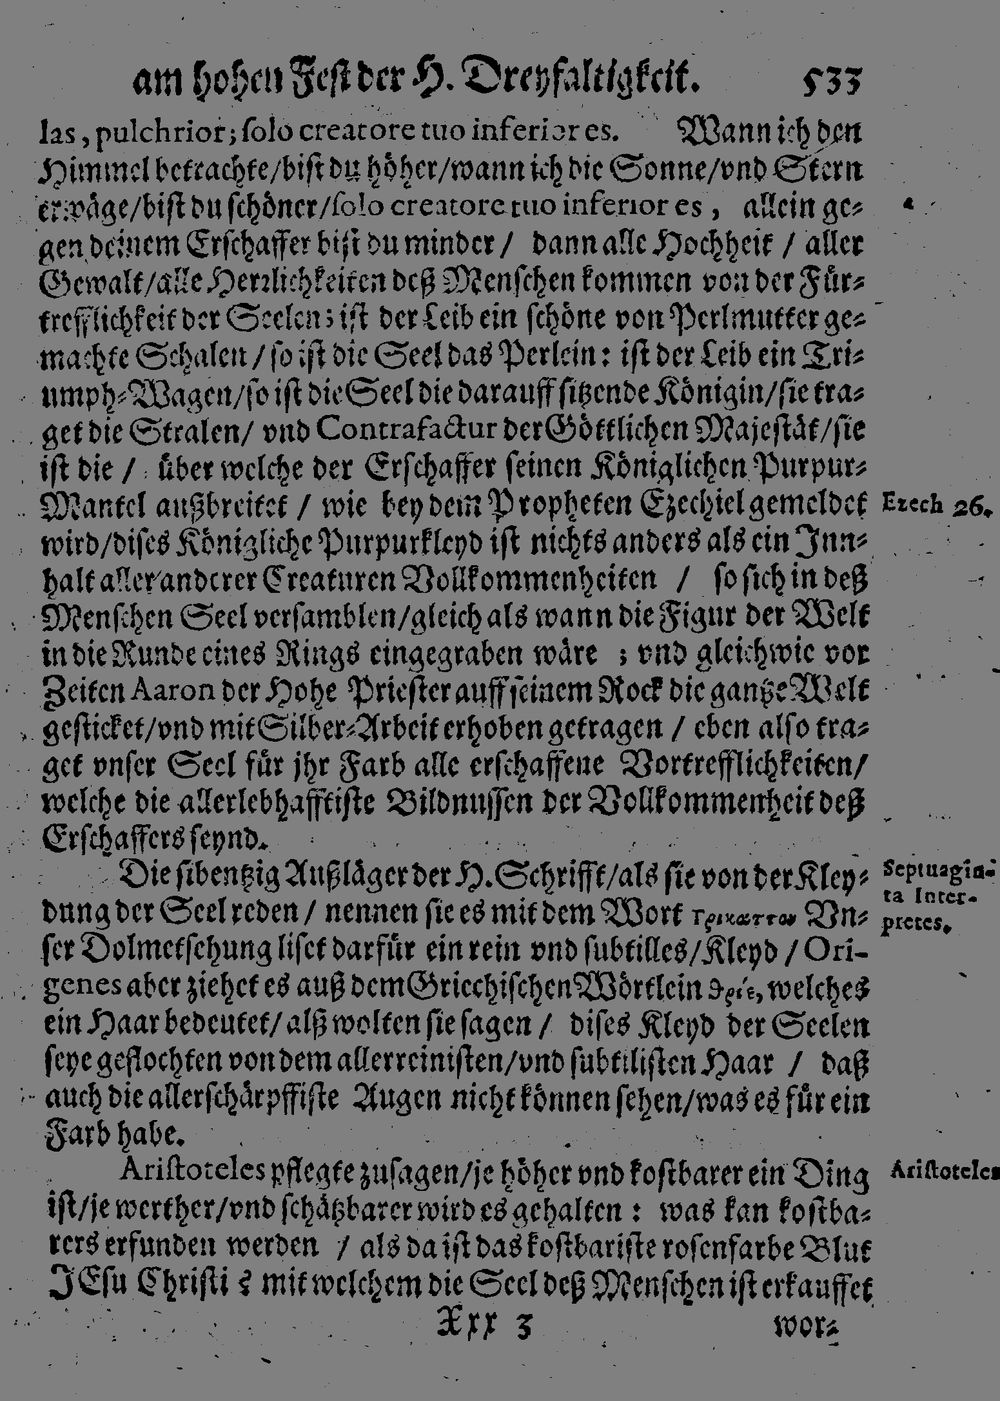 am hohen Fest der H. Dreyfaltigkeit. 533
las, pulchrior; solo creatore tuo inferior es. Wann ich den
Himmel betrachte/bist du höher/wann ich die Sonne/vnd Stern
erwäge/bist du schöner/solo creatore tuo inferior es, allein ge-
gen deinem Erschaffer bist du minder/ dann alle Hochheit / aller
Gewalt/alle Herrlichkeiten deß Menschen kommen von der Für-
trefflichkeit der Seelen; ist der Leib ein schöne von Perlmutter ge-
machte Schalen/ so ist die Seel das Perlein: ist der Leib ein Tri-
umph-Wagen/so ist die Seel die darauff sitzende Königin/sie tra-
get die Stralen/ vnd Contrafactur der Göttlichen Majestät/sie
ist die / über welche der Erschaffer seinen Königlichen Purpur-
Mantel außbreitet / wie bey dem Propheten Ezechiel gemeldet
Ezech 26.
wird/dises Königliche Purpurkleyd ist nichts anders als ein Inn-
halt aller anderer Creaturen Vollkommenheiten / so sich in deß
Menschen Seel versamblen/gleich als wann die Figur der Welt
in die Runde eines Rings eingegraben wäre ; vnd gleichwie vor
Zeiten Aaron der Hohe Priester auff seinem Rock die gantze Welt
gesticket/vnd mit Silber-Arbeit erhoben getragen / eben also tra-
get vnser Seel für jhr Farb alle erschaffene Vortrefflichkeiten/
welche die allerlebhafftiste Bildnussen der Vollkommenheit deß
Erschaffers seynd.
Die sibentzig Außläger der H. Schrifft/als sie von der Kley-
Septuagin-
ta Inter-
pretes.
dung der Seel reden / nennen sie es mit dem Wort Vn-
ser Dolmetschung liset darfür ein rein vnd subtilles/Kleyd / Ori-
genes aber ziehet es auß dem Griechischen Wörtlein welches
ein Haar bedeutet/alß wolten sie sagen / dises Kleyd der Seelen
seye geflochten von dem allerreinisten/vnd subtilisten Haar / daß
auch die allerschärpffiste Augen nicht können sehen/was es für ein
Farb habe.
Aristoteles pflegte zusagen/je höher vnd kostbarer ein Ding
Aristoteles
ist/je werther/vnd schätzbarer wird es gehalten: was kan kostba-
rers erfunden werden / als da ist das kostbariste rosenfarbe Blut
JEsu Christi ? mit welchem die Seel deß Menschen ist erkauffet
Xxx 3 wor-